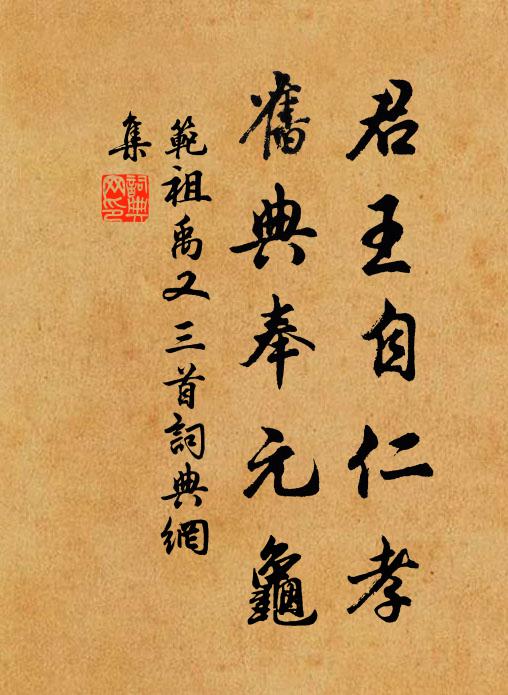 君王自仁孝
舊典奉元龜
範祖禹又三首詞典網
集
詞典
网印